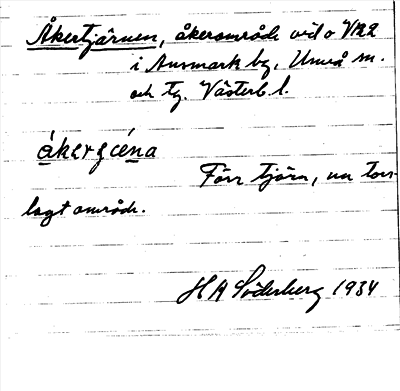 Åkertjärnen, åkerområde vid o V 122
i Ansmark by, Umeå sn.
och tg. Västerb. l.
Förr tjärn, nu torr-
lagt område.
H A Söderberg 1934